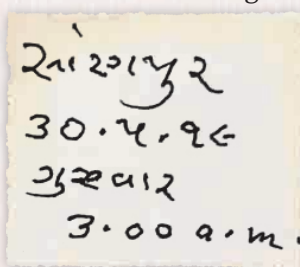 સાંરંગપુર
30.૫.૧૯
ગુરૂવાર
3.00 a.m.